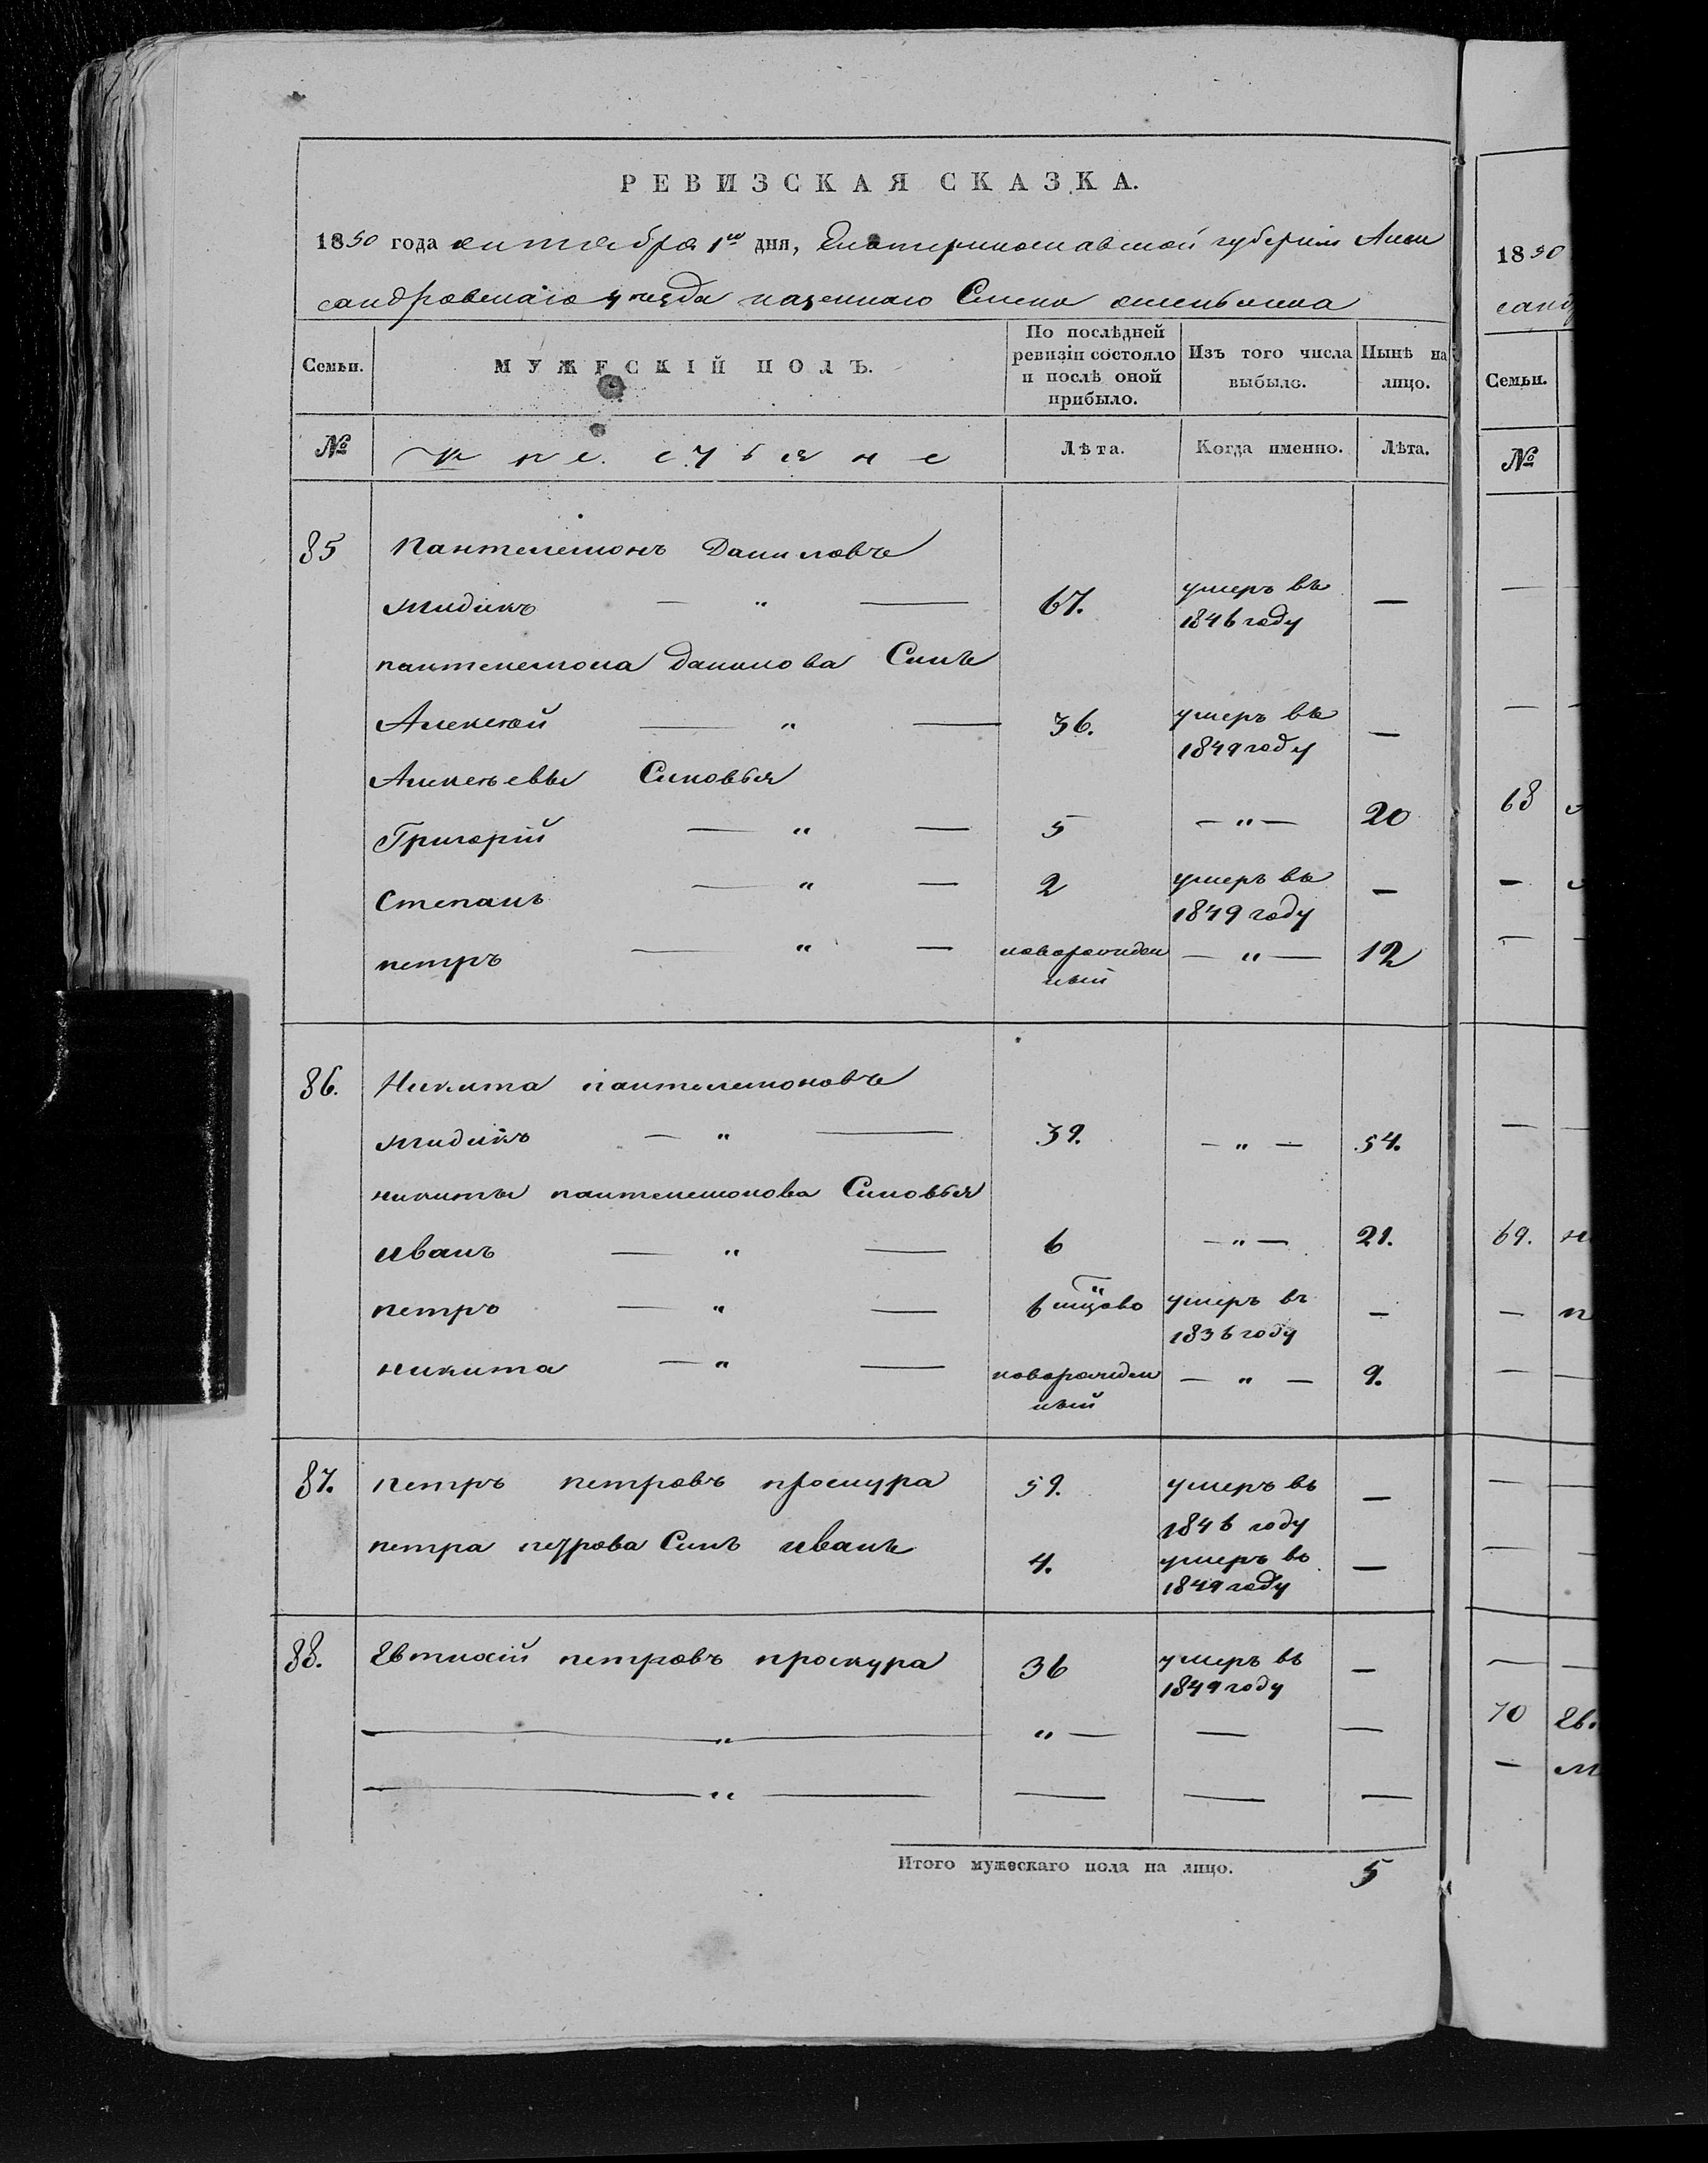 РЕВИЗСКАЯ СКАЗКА.
1850 года октября 1го дня, Екатеринославской губернiи Алек
сандровскаго уезда казеннаго Села
Семьи.
МУЖЕСКIЙ ПОЛЪ.
По послѣдней ревизiи состояло и послѣ оной прибыло.
Изъ того числа выбыло.
Нынѣ на лицо.
№
Лѣта.
Когда именно.
Лѣта.
85 Пантелемонъ Даниловъ
Жидикъ — " — 67. умеръ въ 1846 году —
пантелемона данилова Синъ
Алексей — " — 36. умеръ въ 1849 году —
Алексѣевы Синовья
Григорiй — " — 5 — " — 20
Степанъ — " — 2 умеръ въ 1849 году —
петръ — " — новорожден ный — " — 12
86. Никита пантелемоновъ
Жидикъ — " — 39. — " — 54.
никиты пантелемонова Синовья
иванъ — " — 6 — " — 21.
петръ — " — 6 мцово умеръ въ 1836 году —
никита — " — новорожден ный — " — 9.
87. петръ петровъ проскура 59. умеръ въ 1846 году —
петра петрова Синъ иванъ 4. умеръ въ 1849 году —
88. Евтихiй петровъ проскура 36 умеръ въ 1849 году —
— " — " — — —
— " — — — —
Итого мужескаго пола на лицо. 5
1850
санд
Семьи.
№
68
69.
70 Ев